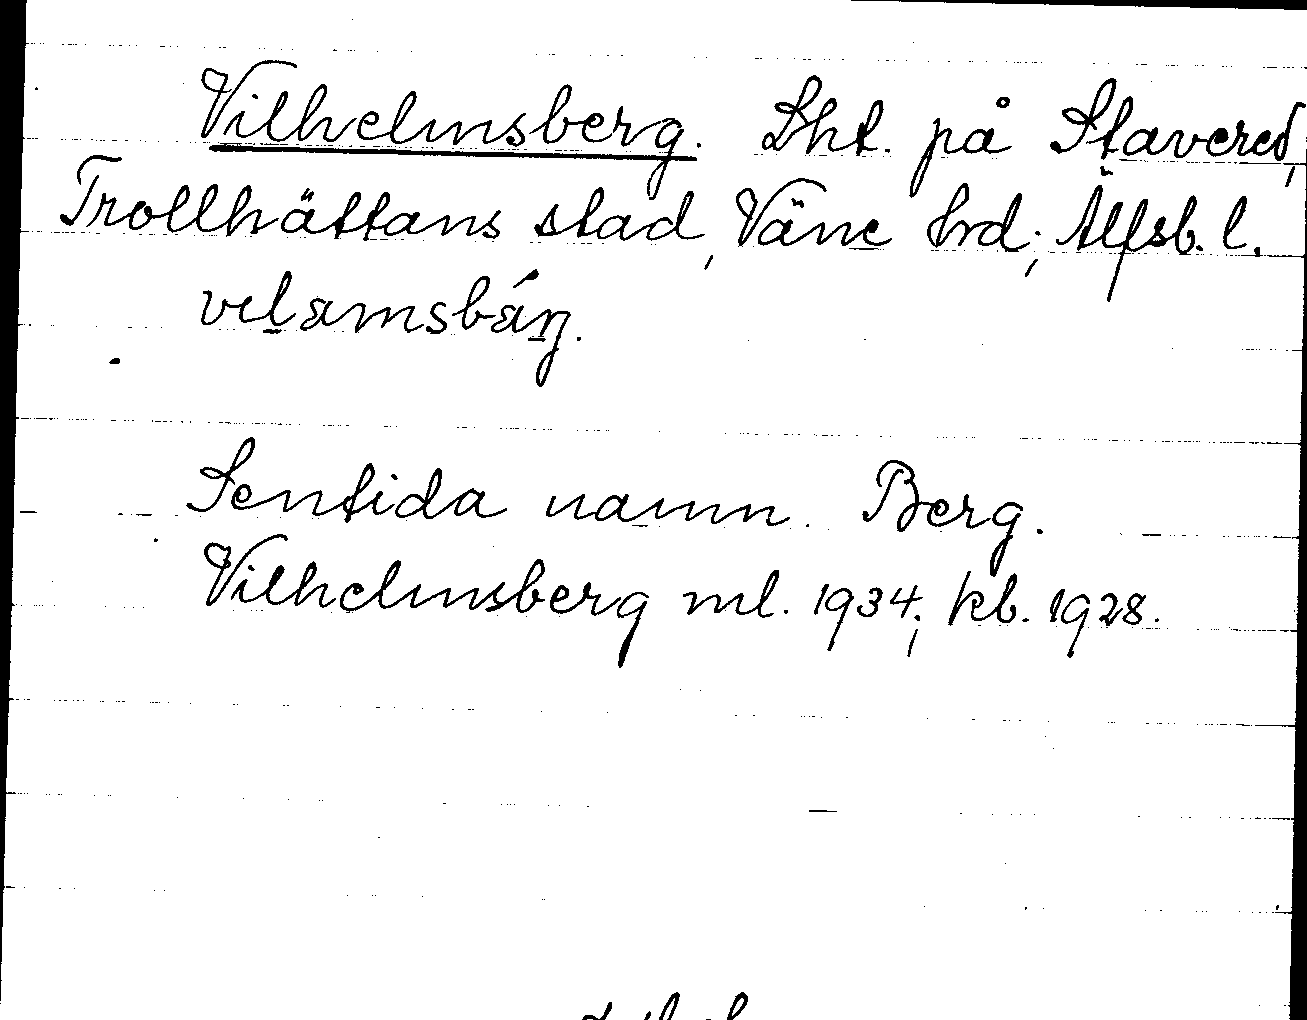 Vilhelmsberg. Lht. på Stavered,
Trollhättans stad, Väne hrd; Älfsb. l.
Sentida namn. Berg.
Vilhelmsberg ml. 1934; kb. 1928.